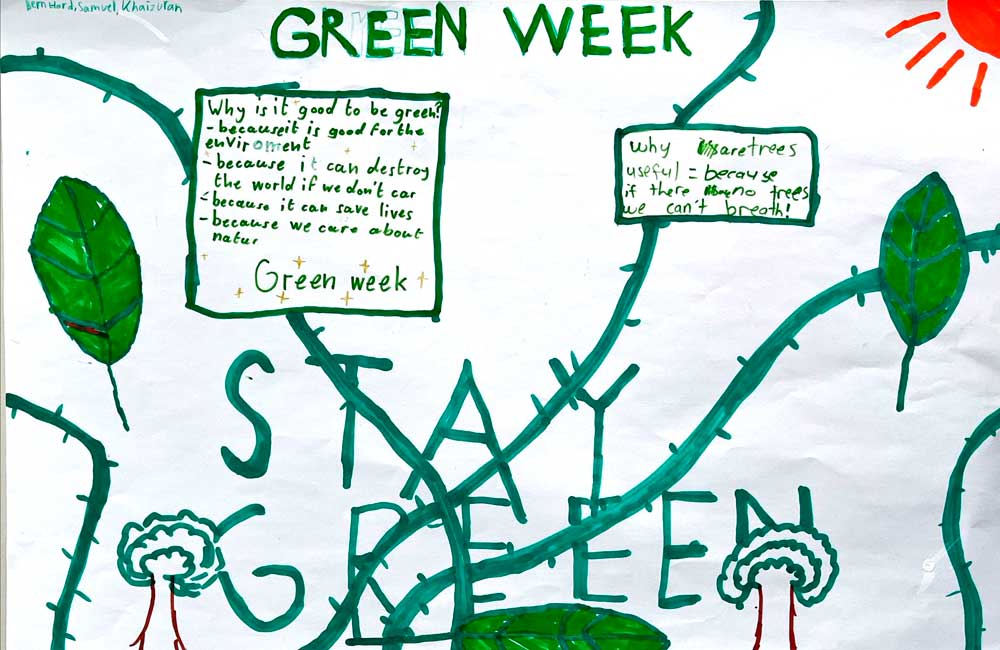 Bernhard, Samuel, Khaizuran
GREEN WEEK
Why is it good to be green?
- because it is good for the
enviroment
- because it can destroy
the world if we don't car
- because it can save lives
- because we care about
natur
Green week
why are trees
useful = because
if there no trees
we can't breath!
STAY
GREEN